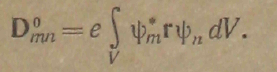 D⁰ₘₙ = e ∫_V ψ*ₘ r ψₙ dV.